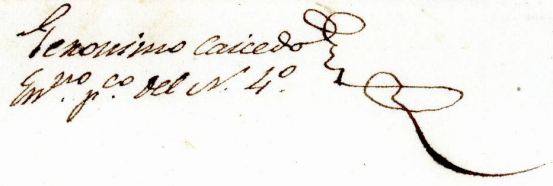 Geronimo Caicedo
Em.no p.co del N. 4.o